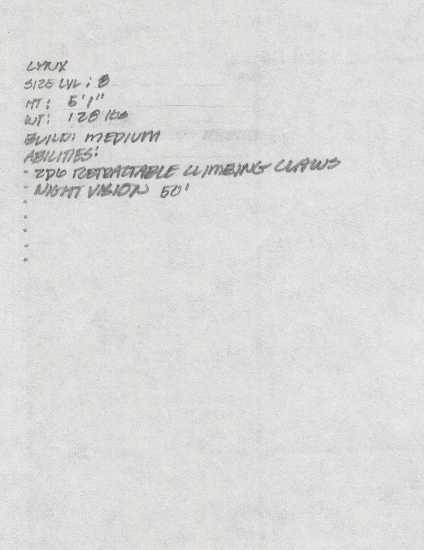 LYNX
SIZE LVL: 8
HT: 5'1"
WT: 128 lbs
BUILD: MEDIUM
ABILITIES:
- 2D6 RETRACTABLE CLIMBING CLAWS
- NIGHT VISION 50'
-
-
-
-
-